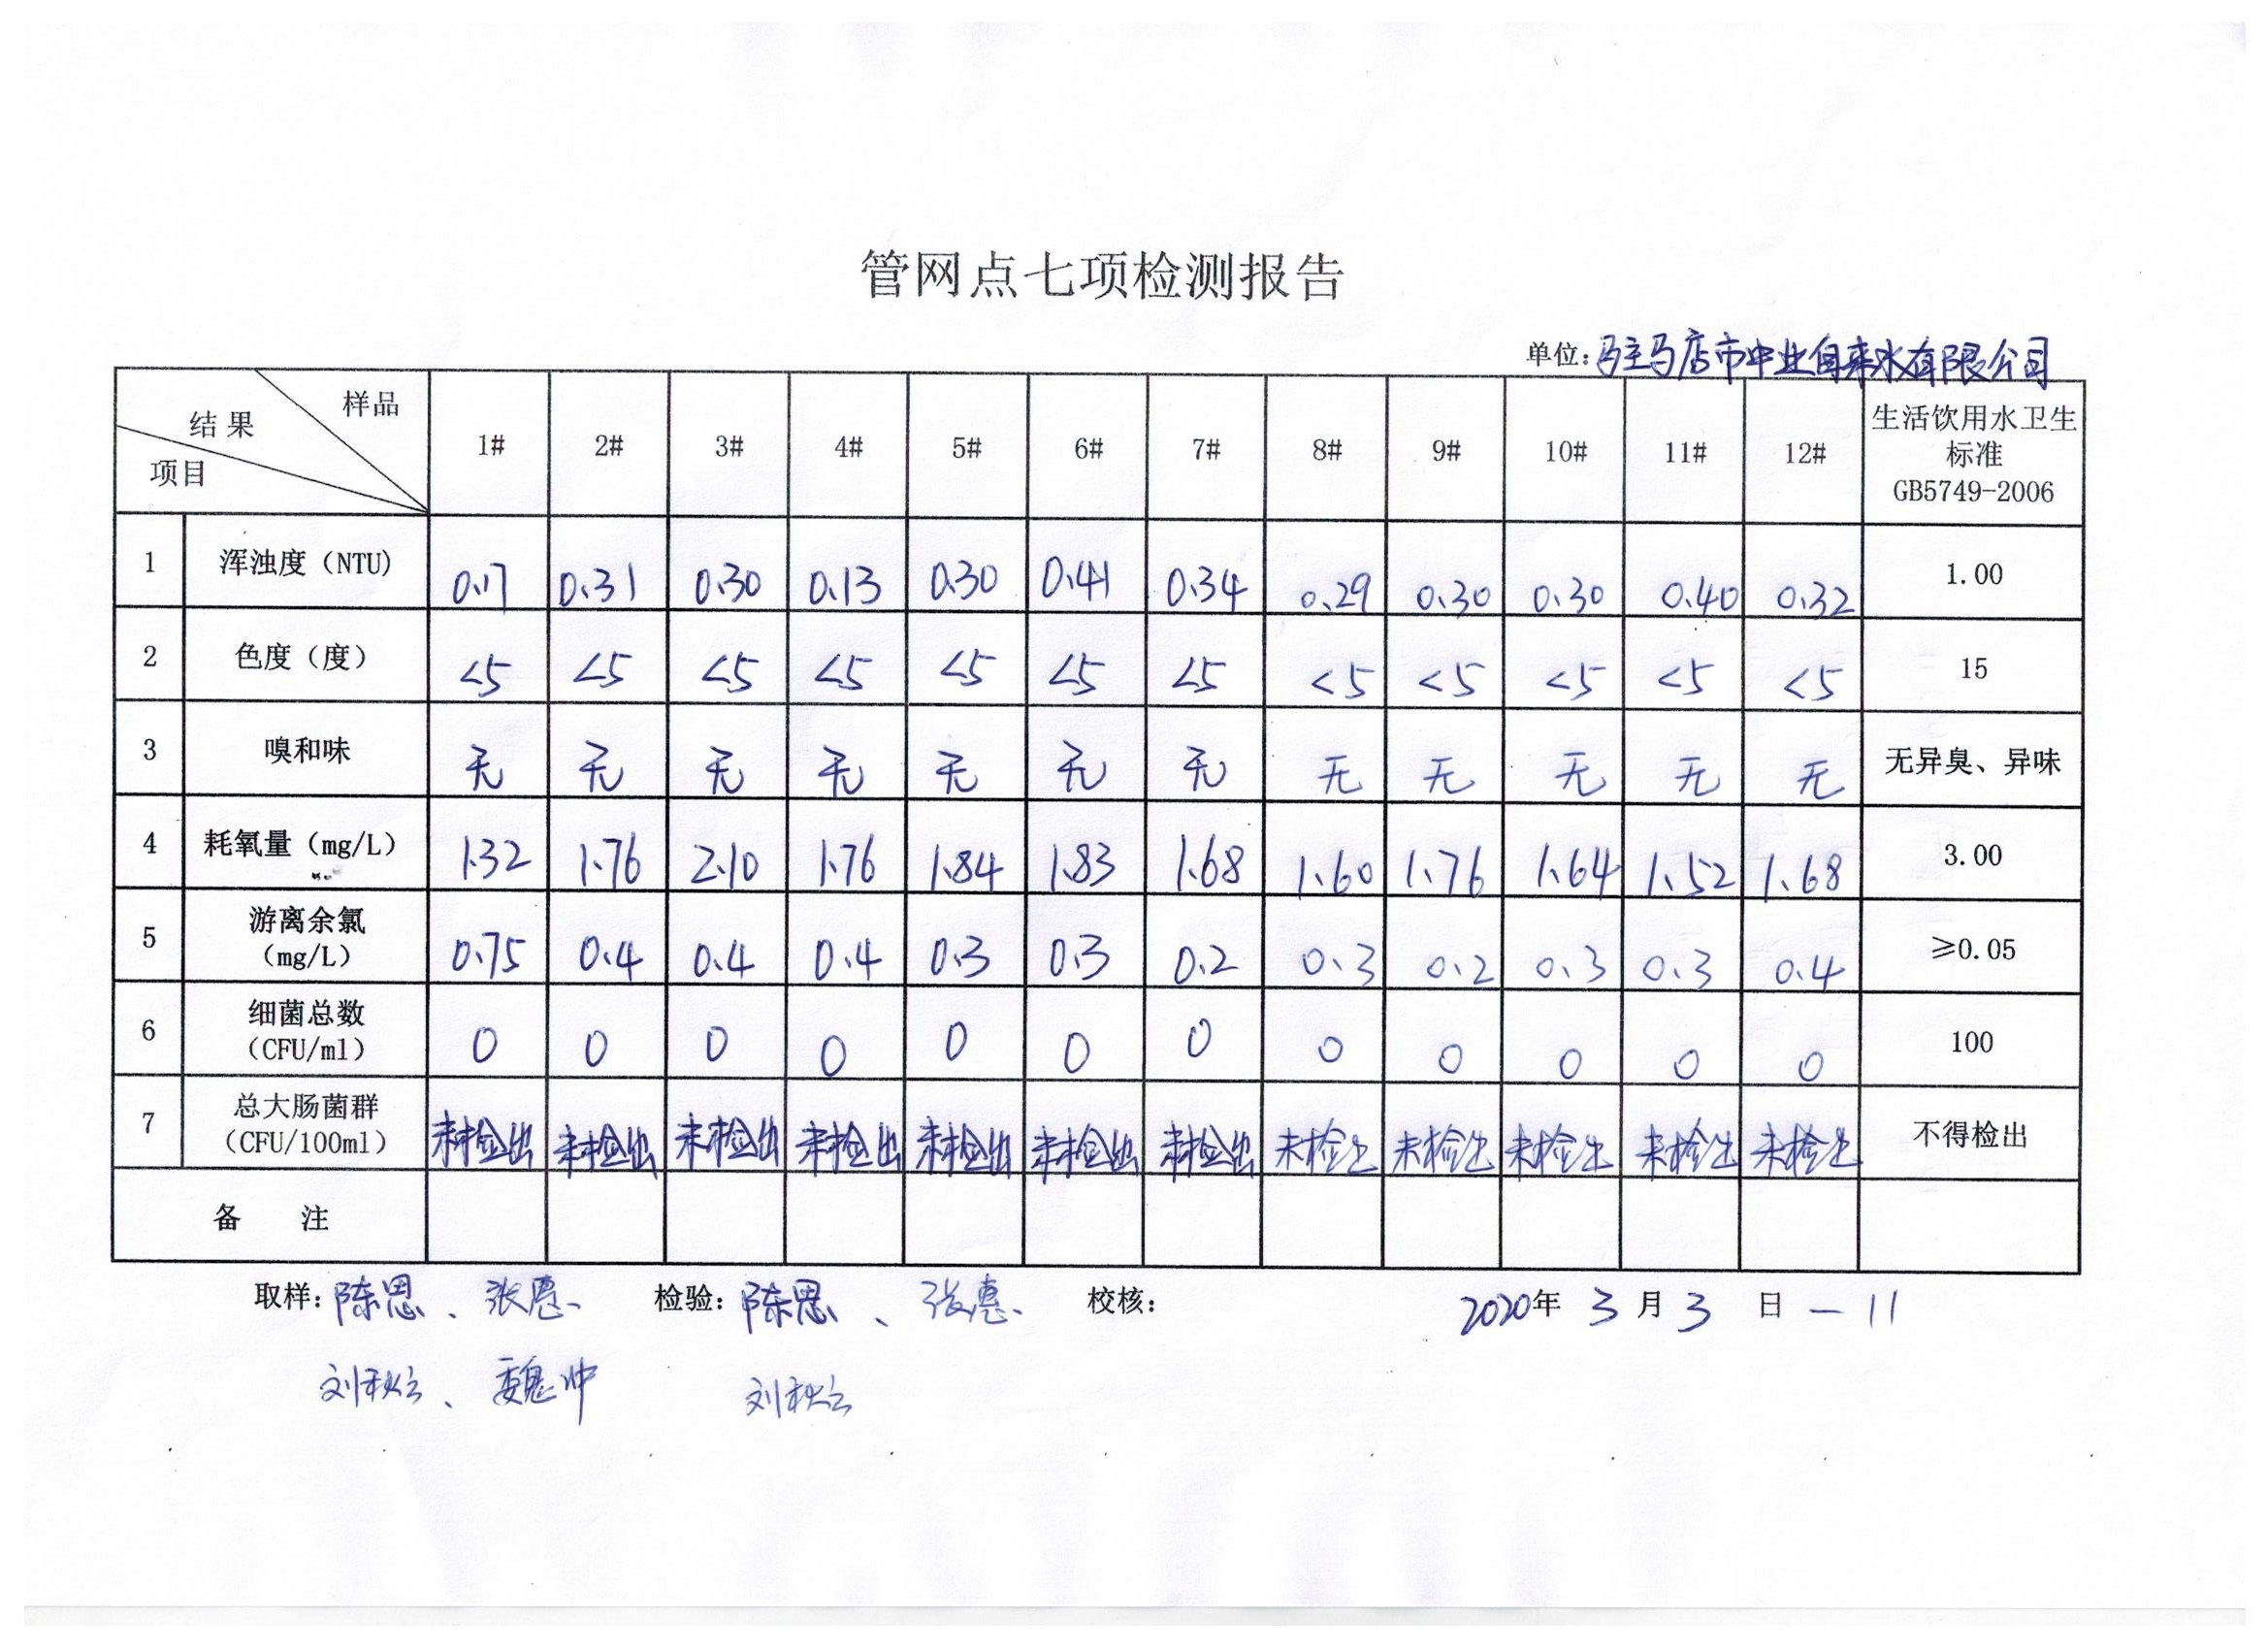 管网点七项检测报告
单位:驻马店市中业自来水有限公司
样品 结果 项目 1# 2# 3# 4# 5# 6# 7# 8# 9# 10# 11# 12# 生活饮用水卫生标准 GB5749-2006
1 浑浊度（NTU) 0.17 0.31 0.30 0.13 0.30 0.41 0.34 0.29 0.30 0.30 0.40 0.32 1.00
2 色度（度） <5 <5 <5 <5 <5 <5 <5 <5 <5 <5 <5 <5 15
3 嗅和味 无 无 无 无 无 无 无 无 无 无 无 无 无异臭、异味
4 耗氧量（mg/L） 1.32 1.76 2.10 1.76 1.84 1.83 1.68 1.60 1.76 1.64 1.52 1.68 3.00
5 游离余氯（mg/L） 0.75 0.4 0.4 0.4 0.3 0.3 0.2 0.3 0.2 0.3 0.3 0.4 ≥0.05
6 细菌总数（CFU/ml） 0 0 0 0 0 0 0 0 0 0 0 0 100
7 总大肠菌群（CFU/100ml） 未检出 未检出 未检出 未检出 未检出 未检出 未检出 未检出 未检出 未检出 未检出 未检出 不得检出
备 注
取样: 陈思、张惠、 检验: 陈思、张惠、 校核: 2020年 3 月 3 日 — 11
刘秋云、魏冲 刘秋云